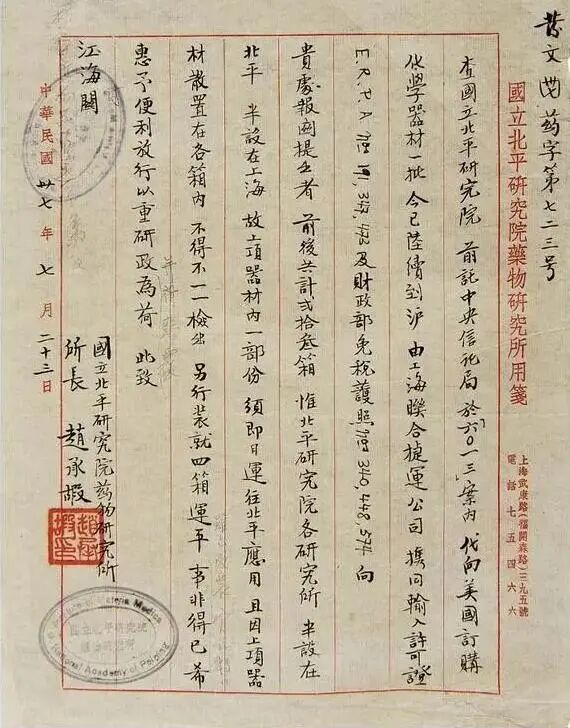 發文滬药字第七二三号
國立北平研究院藥物研究所用箋
上海武康路(福開森路)三九五號
電話七五四六六
查國立北平研究院 前託中央信託局於 案内 代向美國訂購
化學器材一批 今已陸續到沪 由上海聯合捷運公司 携同輸入許可證
E.R.P.A 及財政部免稅護照 340,448,574 向
貴處報關提出者 前後共計貳拾 箱 惟北平研究院各研究所 半設在
北平 半設在上海 故上項器材内一部份 須即日運往北平應用 且因上項器
材散置在各箱内 不得不一一檢出 另行裝就四箱運平 事非得已 希
惠予便利放行以重研政為荷 此致
江海關
國立北平研究院药物研究所
所長 趙承嘏
中華民國卅七年七月二十三日
Institute of Materia Medica
National Academy of Peiping